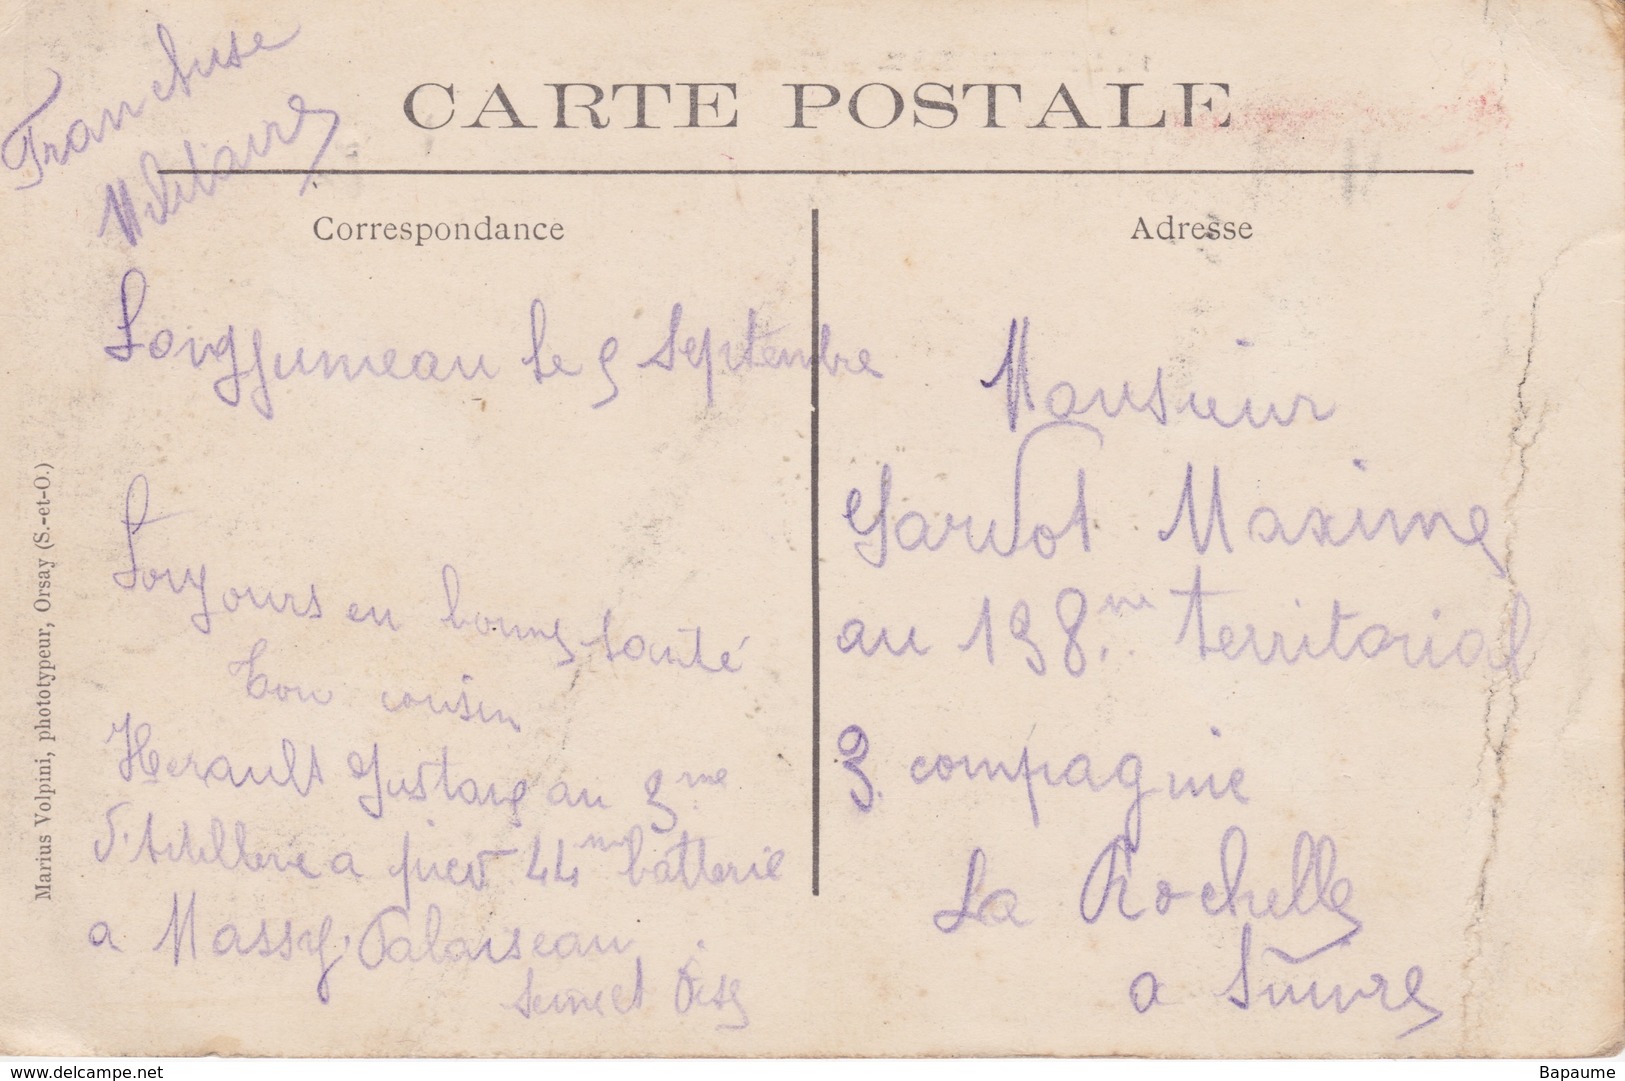 Franchise
Militaire
CARTE POSTALE
Correspondance
Adresse
Longjumeau le 5 Septembre
Toujours en bonne santé
Ton cousin
Herault Gustave au 3me
d'Artillerie a pied 44me batterie
a Massy Palaiseau
Seine et Oise
Monsieur
Gardot Maxime
au 138me territorial
3. compagnie
La Rochelle
a Suivre
Marius Volpini, phototypeur, Orsay (S.-et-O.)
www.delcampe.net
Bapaume